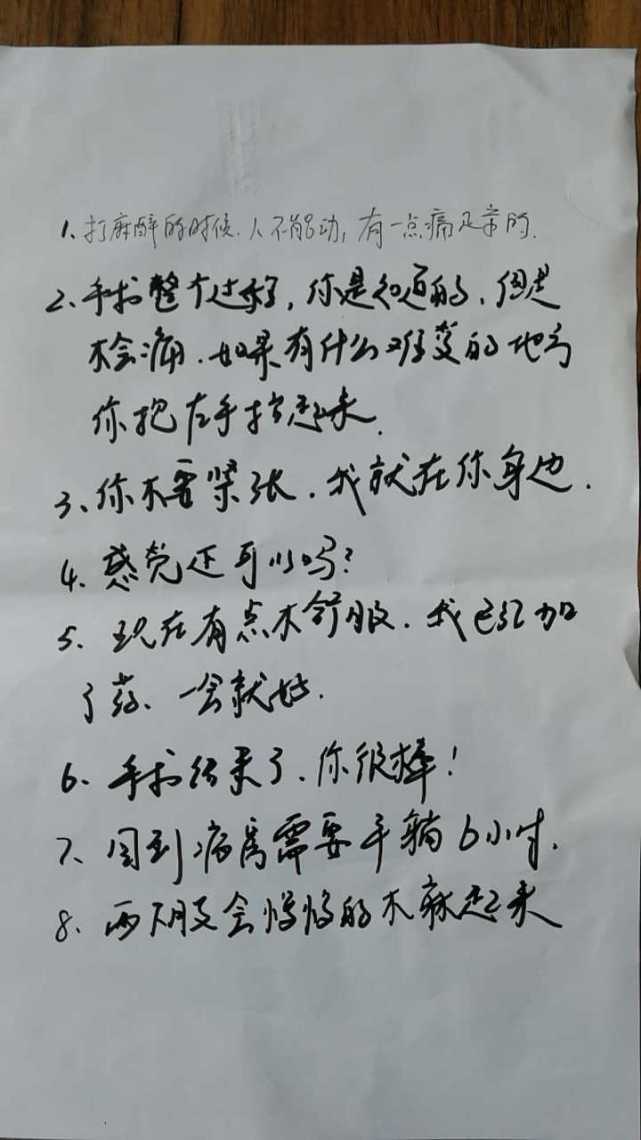 1、打麻醉的时候.人不能动,有一点痛正常的.
2、手术整个过程,你是知道的、但是
不会痛.如果有什么难受的地方
你把左手抬起来.
3、你不要紧张.我就在你身边.
4、感觉还可以吗?
5、现在有点不舒服.我已经加
了药、一会就好.
6、手术结束了、你很棒!
7、回到病房需要平躺6小时.
8、两下肢会慢慢的木麻起来